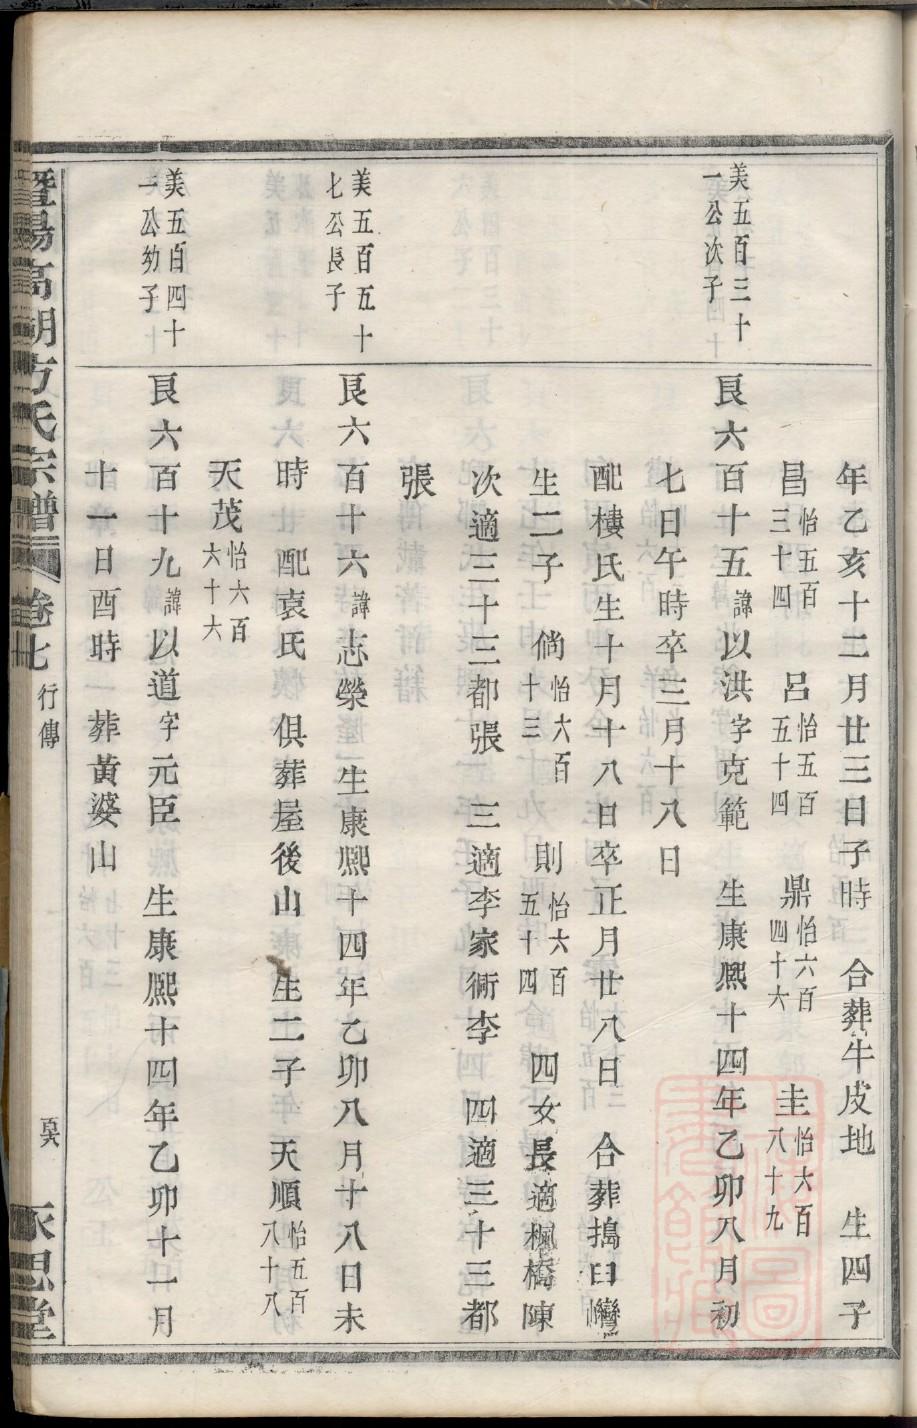 年乙亥十二月廿三日子時　合葬牛皮地　生四子
昌怡五百三十四　呂怡五百五十四　鼎怡六百四十六　圭怡六百八十九
美五百三十一公次子
艮六百十五諱以洪字克範　生康熙十四年乙卯八月初
七日午時卒三月十八日
配樓氏生十月十八日卒正月廿八日　合葬搗臼灣
生二子　倘怡六百十三　則怡六百五十四　四女長適楓橋陳
次適三十三都張　三適李家衕李　四適三十三都
張
美五百五十七公長子
艮六百十六諱志榮　生康熙十四年乙卯八月十八日未
時　配袁氏　俱葬屋後山　生二子　天順怡五百八十八
天茂怡六百六十六
美五百四十一公幼子
艮六百十九諱以道字元臣　生康熙十四年乙卯十一月
十一日酉時　葬黃婆山
暨陽高湖方氏宗譜　卷七　行傳　永思堂